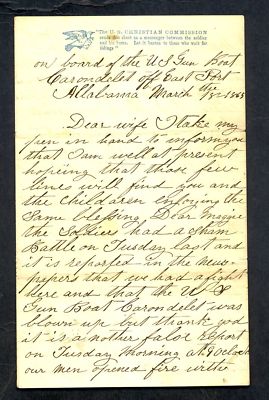 "The U. S. CHRISTIAN COMMISSION
sends this sheet as a messenger between the soldier
and his home. Let it hasten to those who wait for
tidings."
on board of the US Gun Boat
Carondelet off East Port
Allabama March the
1865
Dear wife I take my
pen in hand to inform you
that I am well at present
hopiing that those few
lines will find you and
the childaren enjoying the
Same blessing Dear Maggie
the Soldiers had a sham
Battle on Tusday last and
it is reported in the news
pepers that we had a fight
here and that the U S
Gun Boat Carondelet was
blown up but thank god
it is a nother false report
on Tusday Morning at 9 Oclock
our men opened fire with